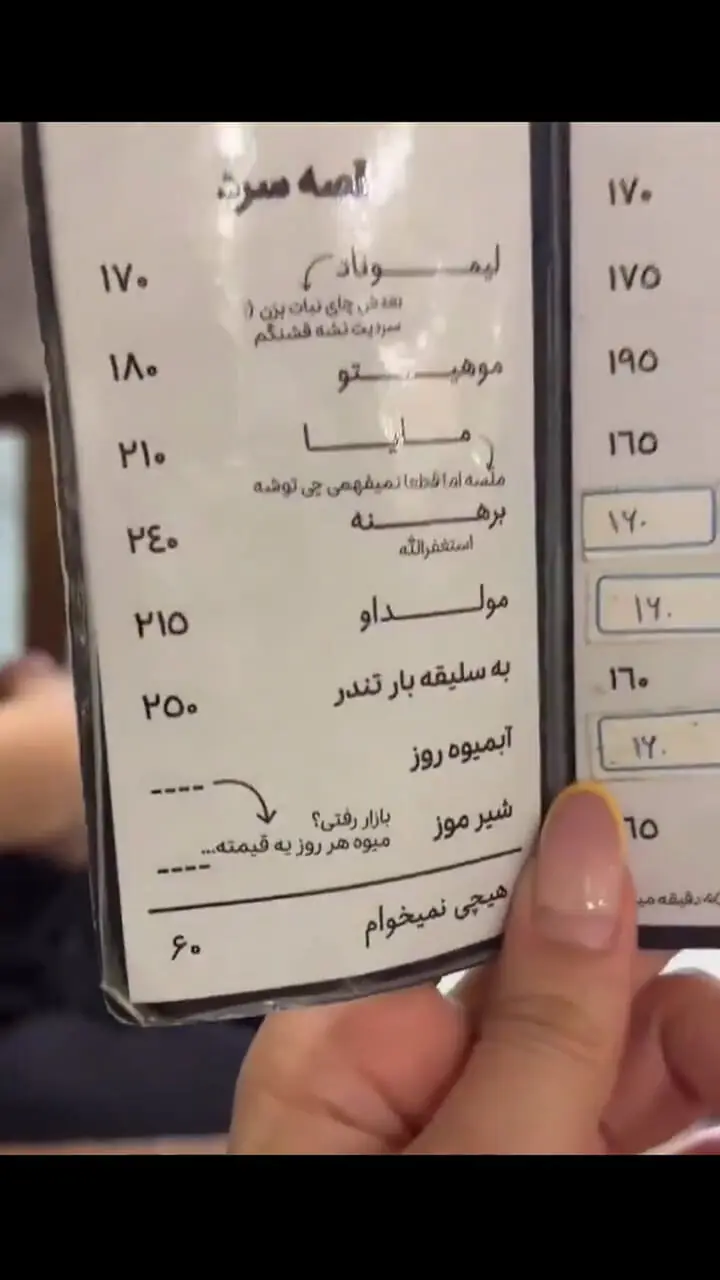 لیموناد ۱۷۰
بعدش چای نبات بزن (
سردیت نشه قشنگم
موهیتو ۱۸۰
مایا ۲۱۰
ملسه اما قطعا نمیفهمی چی توشه
برهنه ۲۴۰
استغفرالله
مولداو ۲۱۵
به سلیقه بار تندر ۲۵۰
آبمیوه روز ----
بازار رفتی؟
میوه هر روز یه قیمته...
شیر موز ----
هیچی نمیخوام ۶۰
۱۷۰
۱۷۵
۱۹۵
۱۶۵
۱۶۰
۱۶۵